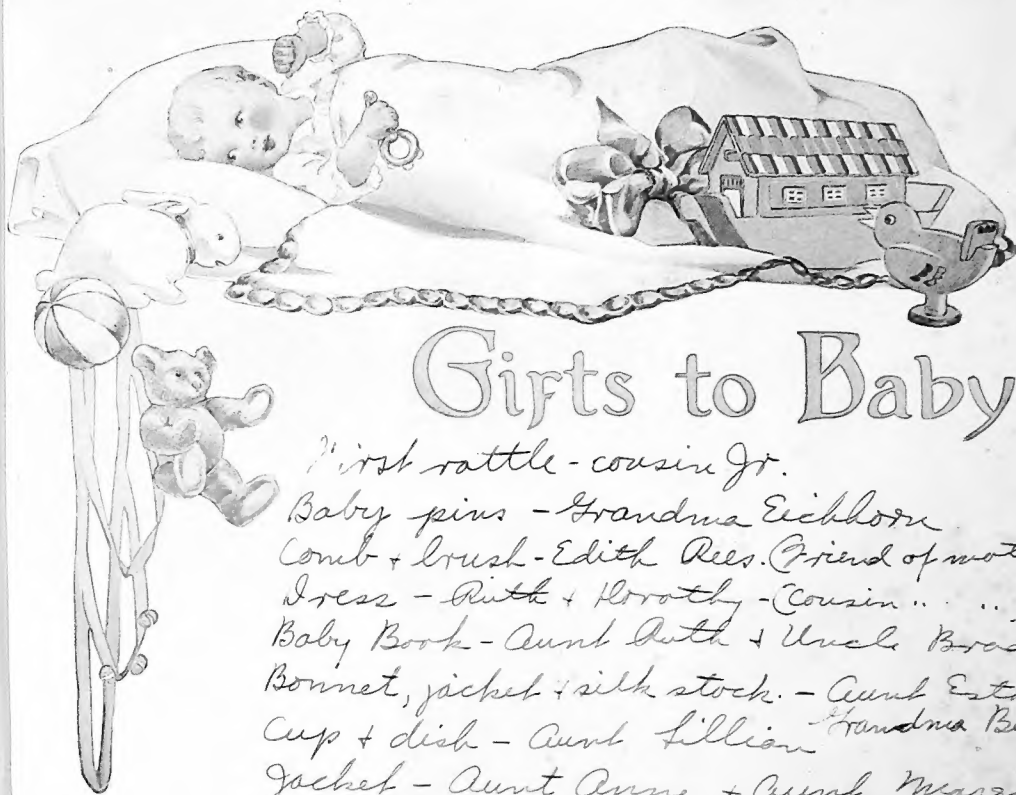 Gifts to Baby
First rattle - cousin Jr.
Baby pins - Grandma Eichhorn
Comb + brush - Edith Rees. (Friend of mot
Dress - Ruth + Dorothy - (Cousin .. ..
Baby Book - Aunt Ruth + Uncle Brad
Bonnet, jacket + silk stock. - Aunt Esth
Grandma Be
Cup + dish - Aunt Lillian
Jacket - Aunt Anne + Aunt